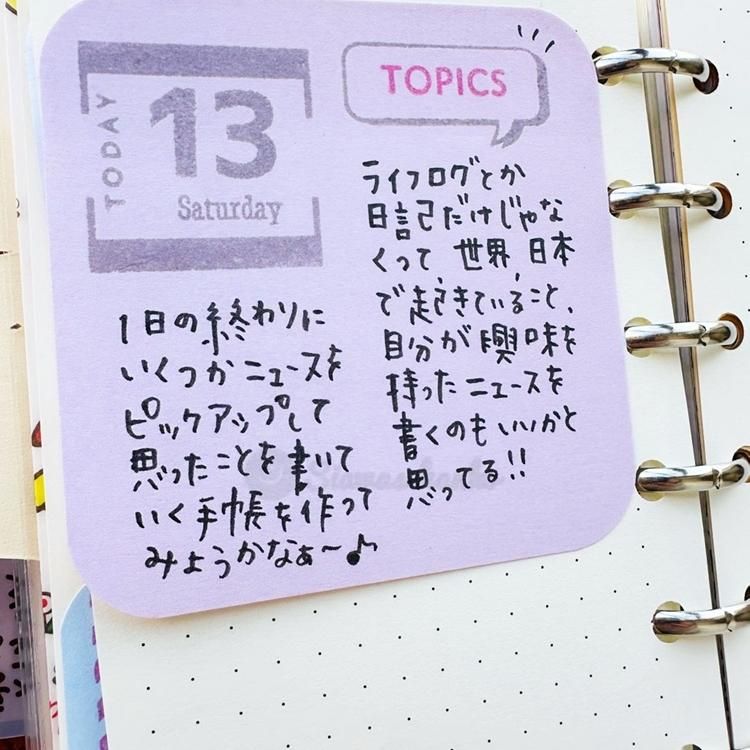 TODAY
13
Saturday
TOPICS
1日の終わりに
いくつかニュースを
ピックアップして
思ったことを書いて
いく手帳を作って
みようかなぁ〜♪
ライフログとか
日記だけじゃな
くって、世界、日本
で起きていること、
自分が興味を
持ったニュースを
書くのもいいかと
思ってる!!